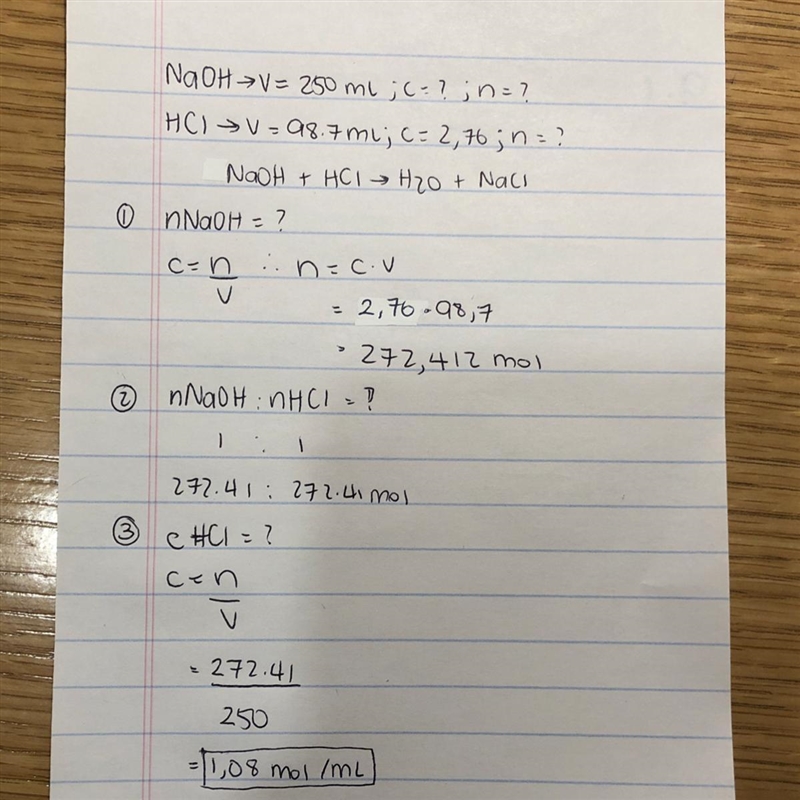 NaOH → V = 250 mL ; c = ? ; n = ?
HCl → V = 98.7 mL ; c = 2,76 ; n = ?
NaOH + HCl → H2O + NaCl
① nNaOH = ?
c = n/V ∴ n = c · v
= 2,76 · 98,7
= 272,412 mol
② nNaOH : nHCl = ?
1 : 1
272.41 : 272.41 mol
③ c HCl = ?
c = n/V
= 272.41/250
= 1,08 mol/mL